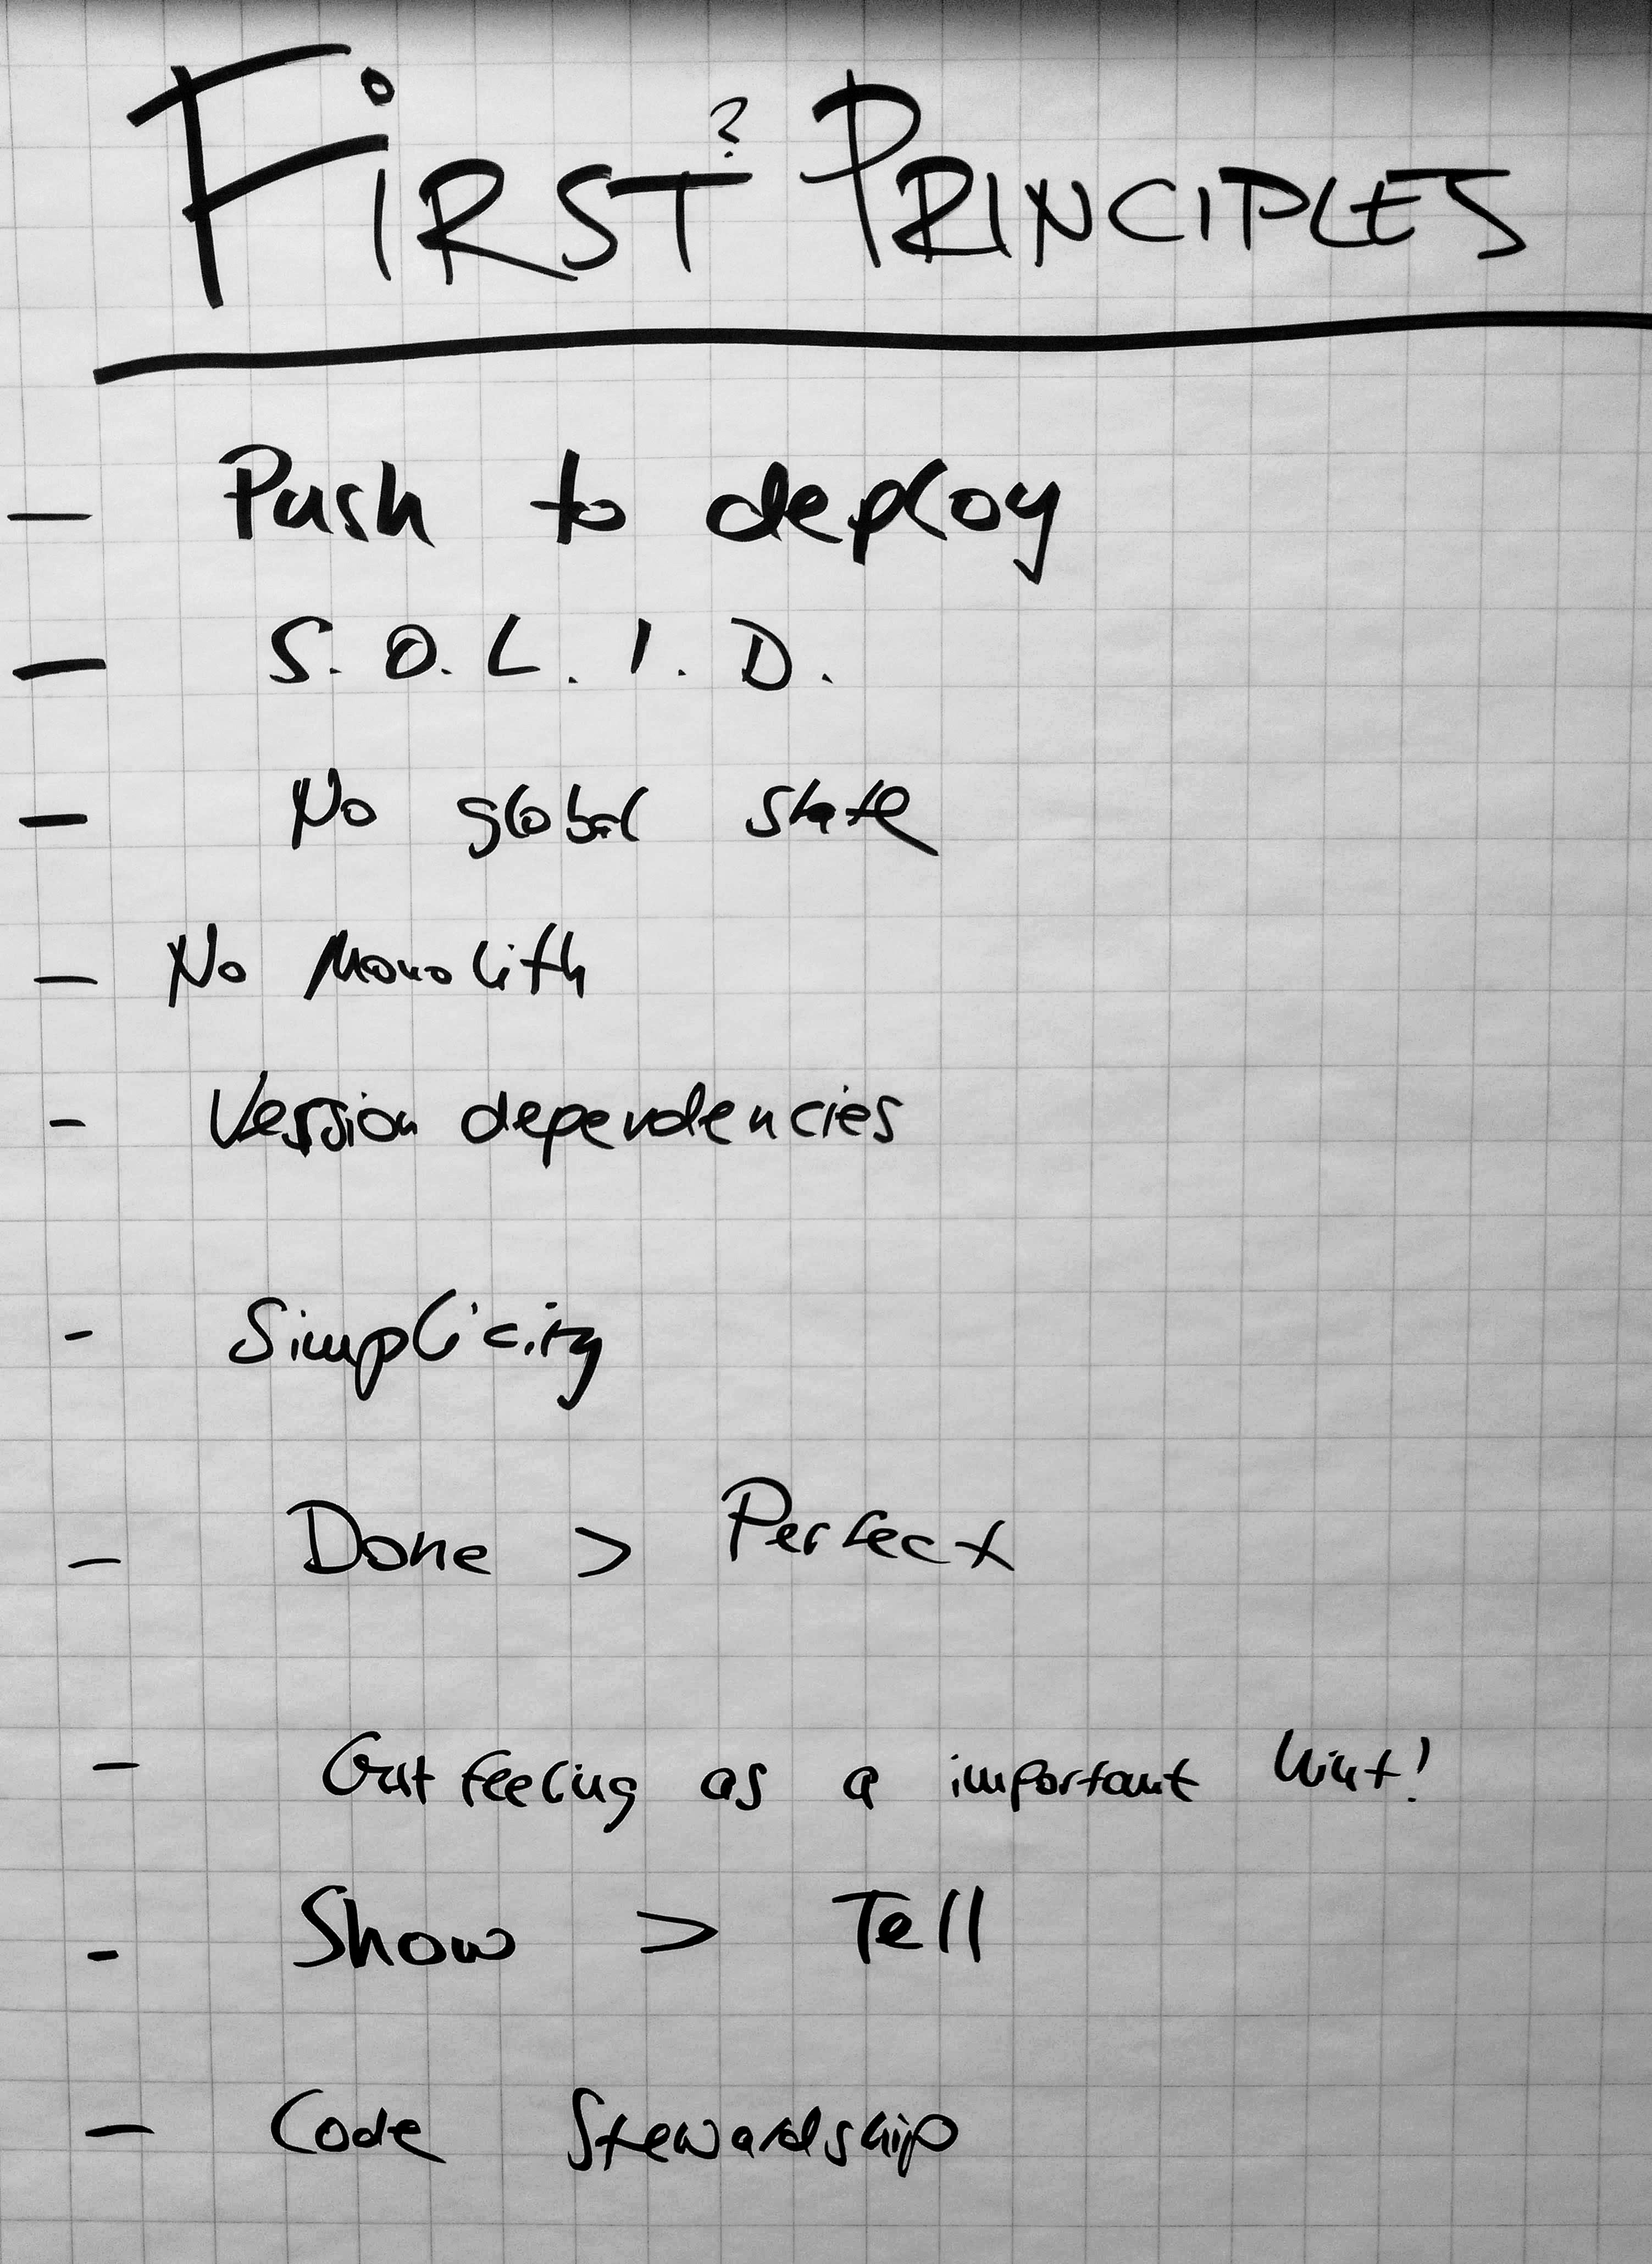 First? Principles
- Push to deploy
- S.O.L.I.D.
- No global state
- No Monolith
- Version dependencies
- Simplicity
- Done > Perfect
- Gut feeling as a important hint!
- Show > Tell
- Code Stewardship